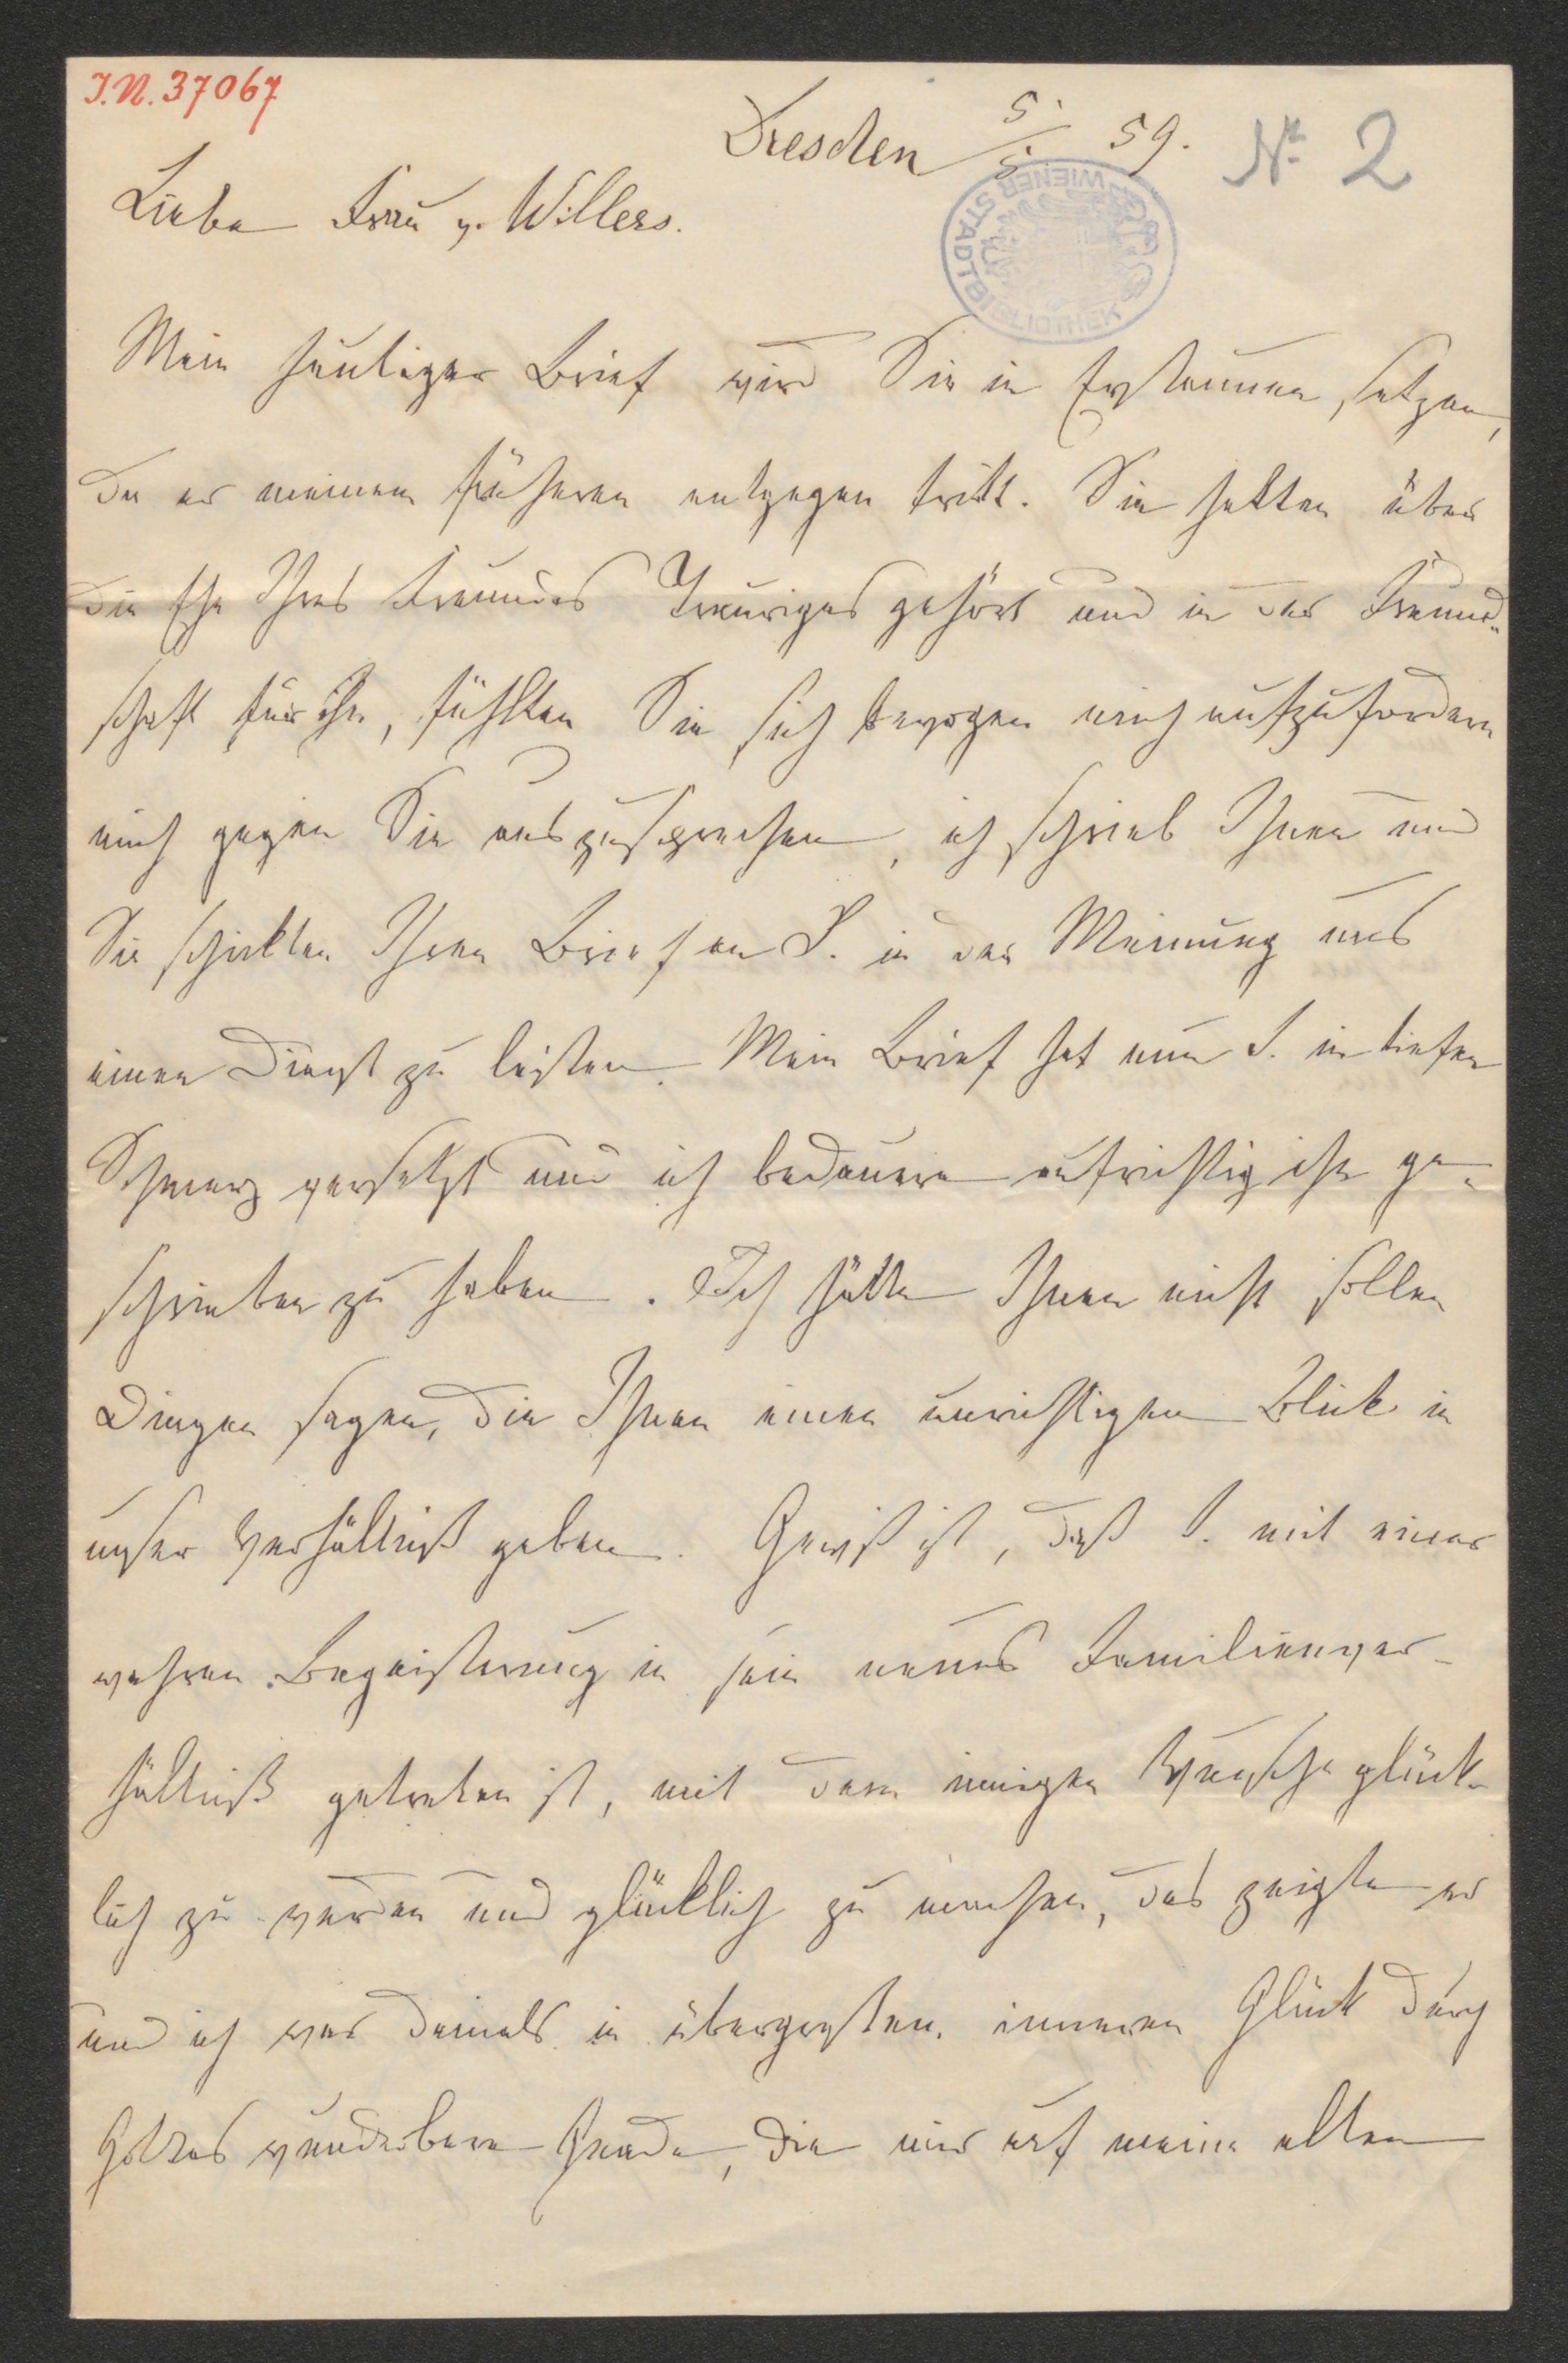 I.N. 37067
Dresden 5/5 59.
Nr. 2
WIENER STADTBIBLIOTHEK
Liebe Frau v. Willers.
Mein heutiger Brief wird Sie in Erstaunen setzen,
da er meinem früheren entgegen tritt. Sie hatten über
die Ehe Ihres Freundes Trauriges gehört und in der Freund-
schaft für ihn, fühlten Sie sich bewogen mich aufzufordern
mich gegen Sie auszusprechen, ich schrieb Ihnen und
Sie schickten Ihren Brief an S. in der Meinung uns
einen Dienst zu leisten. Mein Brief hat nun S. in tiefen
Schmerz versetzt und ich bedauere aufrichtig ihn ge-
schrieben zu haben. Ich hätte Ihnen nicht sollen
Dinge sagen, die Ihnen einen unrichtigen Blick in
unser Verhältniß geben. Gewiß ist, daß S. mit einer
wahren Begeisterung in sein neues Familienver-
hältniß getreten ist, mit dem innigen Wunsche glück-
lich zu werden und glücklich zu machen, das zeigte er
und ich war damals in übergroßem, inneren Glück durch
Gottes wunderbare Gnade, die mir auf meine alten